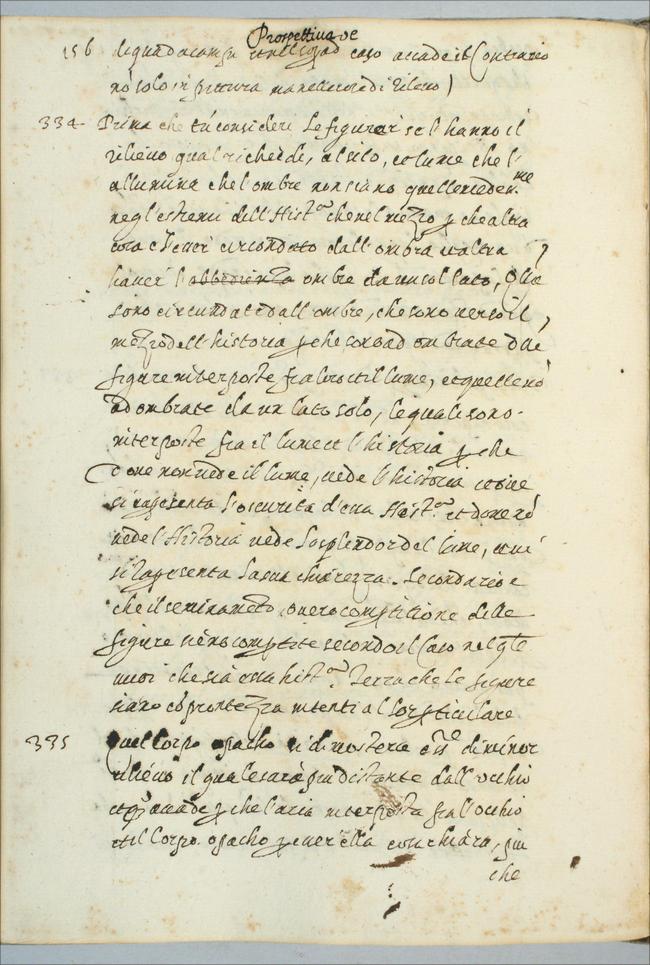 156 Prospettiva
caso accade il Contrario
nõ solo in pittura ma nelle cose di rilievo)
334 Prima che tu consideri le figure se l'hanno il
rilievo qual richiede, al silo, et lume che l'
allumina che l'ombre non siano quelle medeme
negl'estremi dell'Hist.a che nel mezzo p che altra
cosa è l'esser circondato dall'ombra et altra
haver l'abbedienza ombre da un sol lato, Quelle
sono circundate dall'ombre, che sono verso il
mezzo dell'historia p che sono adombrate dalle
figure interposte fra loro et il lume, et quelle nõ
adombrate da un lato solo, le quali sono
interposte fra il lume et l'historia p che
dove non vede il lume, vede l'historia et ivi
si rapresenta l'oscurità d'essa Hist.a et dove nõ
vede l'Historia vede lo splendor del lume, et ivi
si rapresenta la sua chiarezza. Secondario è
che il seminamẽto overo compositione delle
figure
vuoi che sia essa hist.a Terza che le figure
siano cõ prontezza intenti al lor particulare
335 Quel Corpo opacho si dimosterà di minor
rilievo il quale sarà piu distante dall'occhio
accade p che l'aria interposta fra l'occhio
et il Corpo opacho p esser ella cosa chiara, piu
che